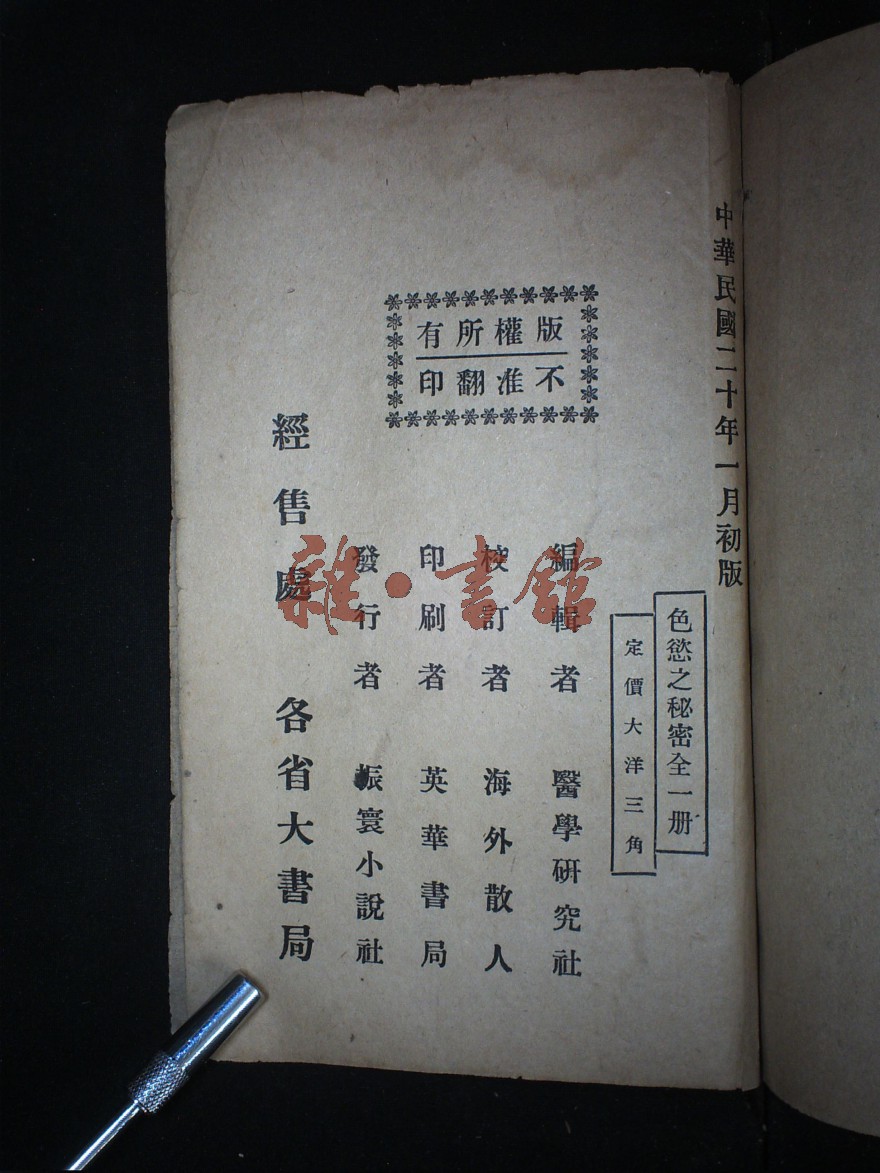 中華民國二十年一月初版
色慾之秘密全一册
定價大洋三角
版權所有
不准翻印
編輯者 醫學硏究社
校訂者 海外散人
印刷者 英華書局
發行者 振寰小說社
經售處 各省大書局
雜·書館